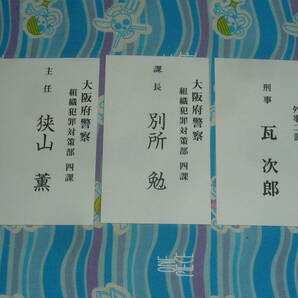 大阪府警察
組織犯罪対策部 四課
主任
狭山 薫
大阪府警察
組織犯罪対策部 四課
課長
別所 勉
刑事
瓦 次郎
ONE PIECE